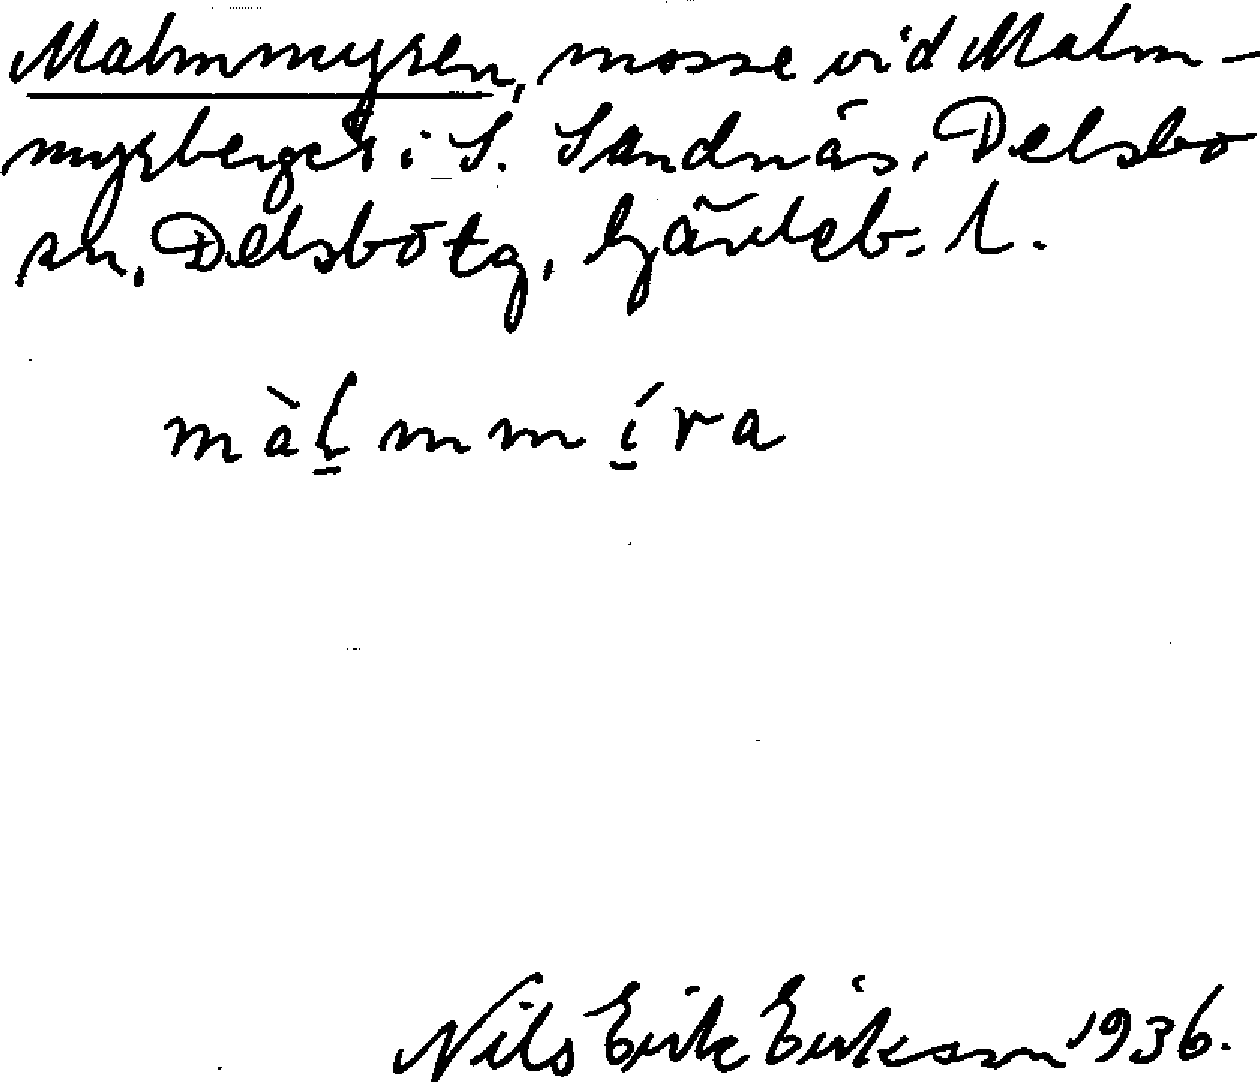 Malmmyren, mosse vid Malm-
myrberget i S. Sandnäs, Delsbo
sn, Delsbo tg, Gävleb. l.
màḻmmí̱ra
Nils Erik Eriksson 1936.